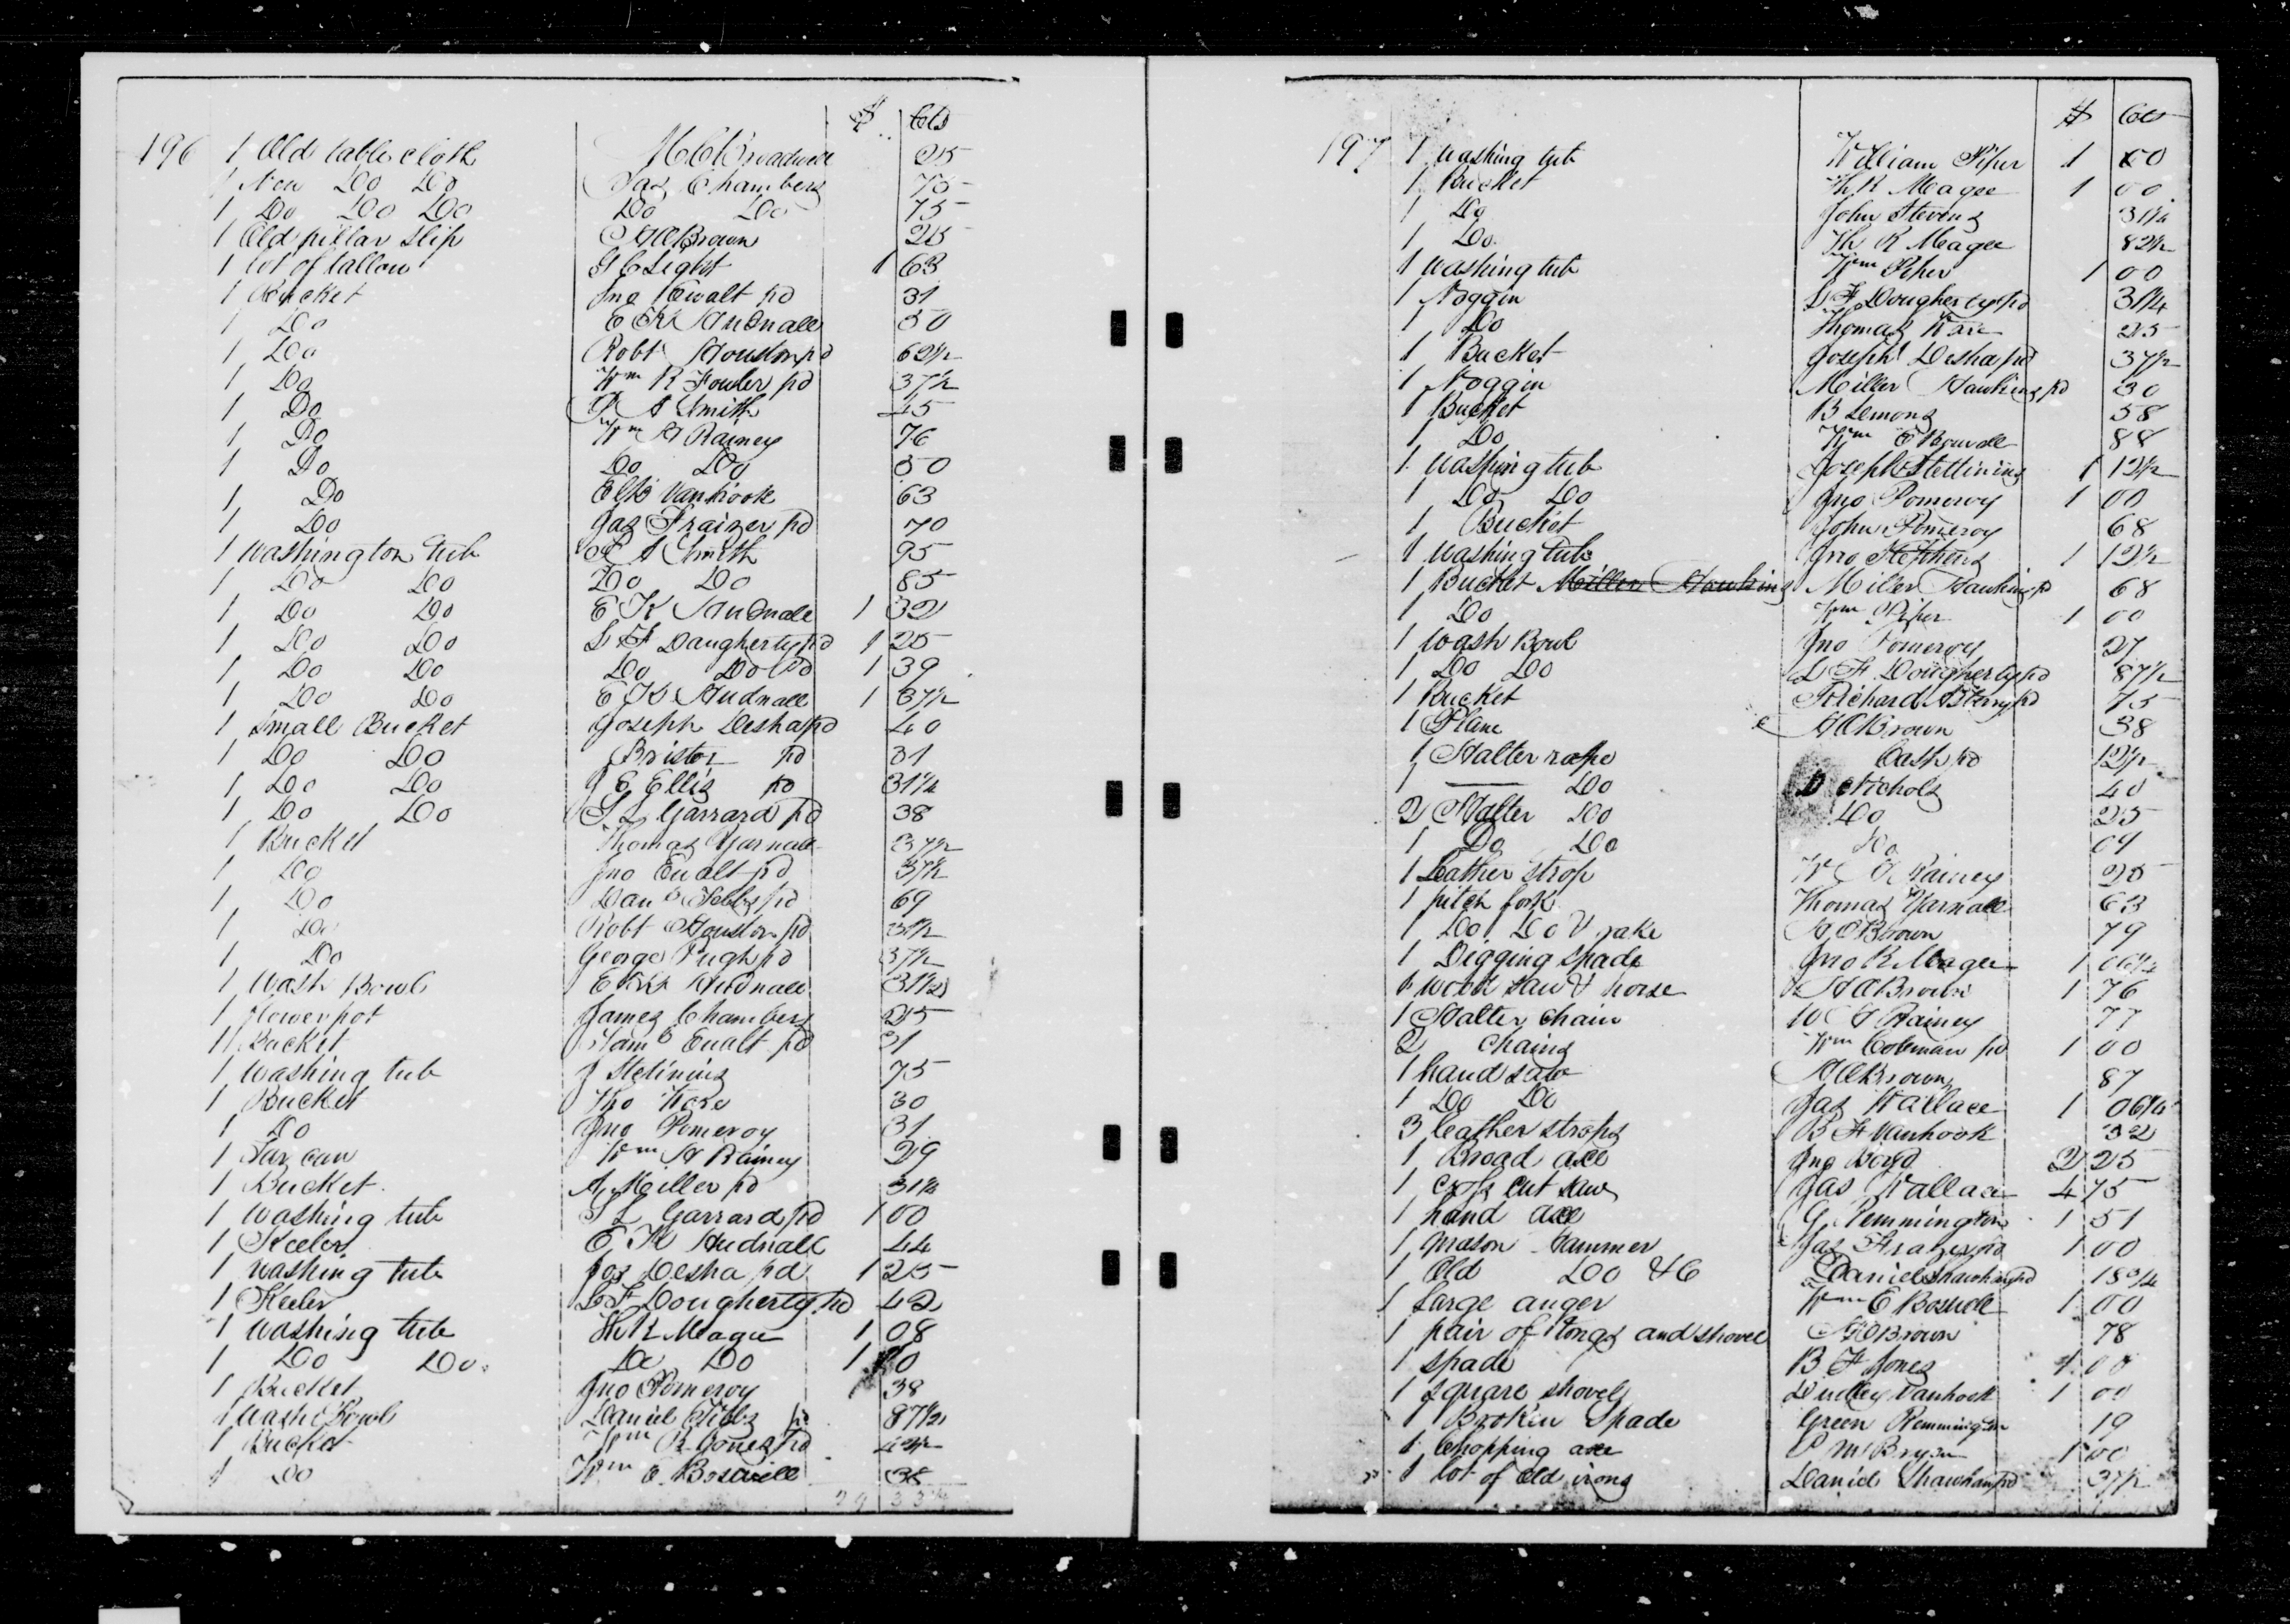 $ Cts
196 1 Old table cloth M C Broadwell 25
1 New Do Do Jas Chambers 75
1 Do Do Do Do Do 75
1 Old pillar slip H C Brown 25
1 lot of tallow G C Light 1 63
1 Bucket Jno Ewalt pd 31
1 Do E K Hudnall 50
1 Do Robt Houston pd 62 1/2
1 Do Wm R Fowler pd 37 1/2
1 Do A Smith 45
1 Do Wm H Rainey 76
1 Do Do Do 50
1 Do Vanhook 63
1 Do Jas Fraizer pd 70
1 Washington tub A Smith 95
1 Do Do Do Do 85
1 Do Do E K Hudnall 1 32
1 Do Do L F Daugherty pd 1 25
1 Do Do Do Do Pd 1 39
1 Do Do E K Hudnall 1 37 1/2
1 Small Bucket Joseph Desha pd 40
1 Do Do Bristor pd 31
1 Do Do J E Ellis pd 31 1/4
1 Do Do T L Garrard pd 38
1 Bucket Thomas Yarnall 37 1/2
1 Do Jno Ewalt pd 37 1/2
1 Do Danl Tebbs pd 69
1 Do Robt Houston pd 31 1/2
1 Do George Pugh pd 37 1/2
1 Wash Bowl E K Hudnall 31 1/2
1 flower pot James Chambers 25
11 Bucket Saml Ewalt pd 31
1 Washing tub J Stetinins 75
1 Bucket Tho Ware 30
1 Do Jno Pomeroy 31
1 Tar can Wm H Rainey 29
1 Bucket A Miller pd 31 1/4
1 Washing tub T L Garrard pd 1 00
1 Keeler E K Hudnall 44
1 Washing tub Jos Desha pd 1 25
1 Keeler L F Dougherty pd 42
1 Washing tub Th R Magee 1 08
1 Do Do Do Do 1
1 Bucket Jno Pomeroy 38
1 Wash Bowl Daniel Tibbs pd 87 1/2
1 Bucket Wm R Jones pd 42 1/2
1 Do Wm E Boswell
$ Cts
197 1 Washing tub William Piper 1 00
1 Bucket Th R Meagee 1 00
1 Do John Stevens 31 1/4
1 Do Th R Meagee 82 1/2
1 Washing tub Wm Piper 1 00
1 Noggin L F Dougherty pd 31 1/4
1 Do Thomas Ware 25
1 Bucket Joseph Desha pd 37 1/2
1 Noggin Miller Hawkins pd 30
1 Bucket B Lemons 58
1 Do Wm E Boswell 88
1 Washing tub Joseph Stettinins 1 12 1/2
1 Do Do Jno Pomeroy 1 00
1 Bucket John Pomeroy 68
1 Washing tub Jno Stephens 1 12 1/2
1 Bucket Miller Hawkins Miller Hawkins pd 68
1 Do Wm Piper 1 00
1 Wash Bowl Jno Pomeroy 27
1 Do Do L F Dougherty pd 87 1/2
1 Bucket Richard Berry pd 75
1 Plane H C Brown 38
1 Halter rope Cash pd 12 1/2
1 Do D Nichols 40
2 Halter Do Do 25
1 Do Do Do 09
1 Leather strop W H Rainey 25
1 pitch fork Thomas Yarnall 63
1 Do Do & rake H C Brown 79
1 Digging Spade Jno R Magee 1 06 1/4
1 Wood saw & horse H C Brown 1 76
1 Halter chain W H Rainey 77
2 chains Wm Coleman pd 1 00
1 hand saw H C Brown 87
1 Do Do Jas Wallace 1 06 1/4
3 leather straps B F Vanhook 32
1 Broad axe Jno Boyd 2 25
1 Cross cut saw Jas Wallace 4 75
1 hand axe G Remmington 1 51
1 mason hammer Jas Frazer pd 1 00
1 Old Do &C Daniel Shawhan pd 18 3/4
1 Large auger Wm E Boswell 1 00
1 pair of tongs and shovel H C Brown 78
1 Spade B F Jones 1 00
1 square shovel Dudley Vanhook 1 00
1 Broken Spade Green Remmington 19
1 Chopping axe P McBryan 1 00
1 lot of Old irons Daniel Shawhan pd 37 1/2